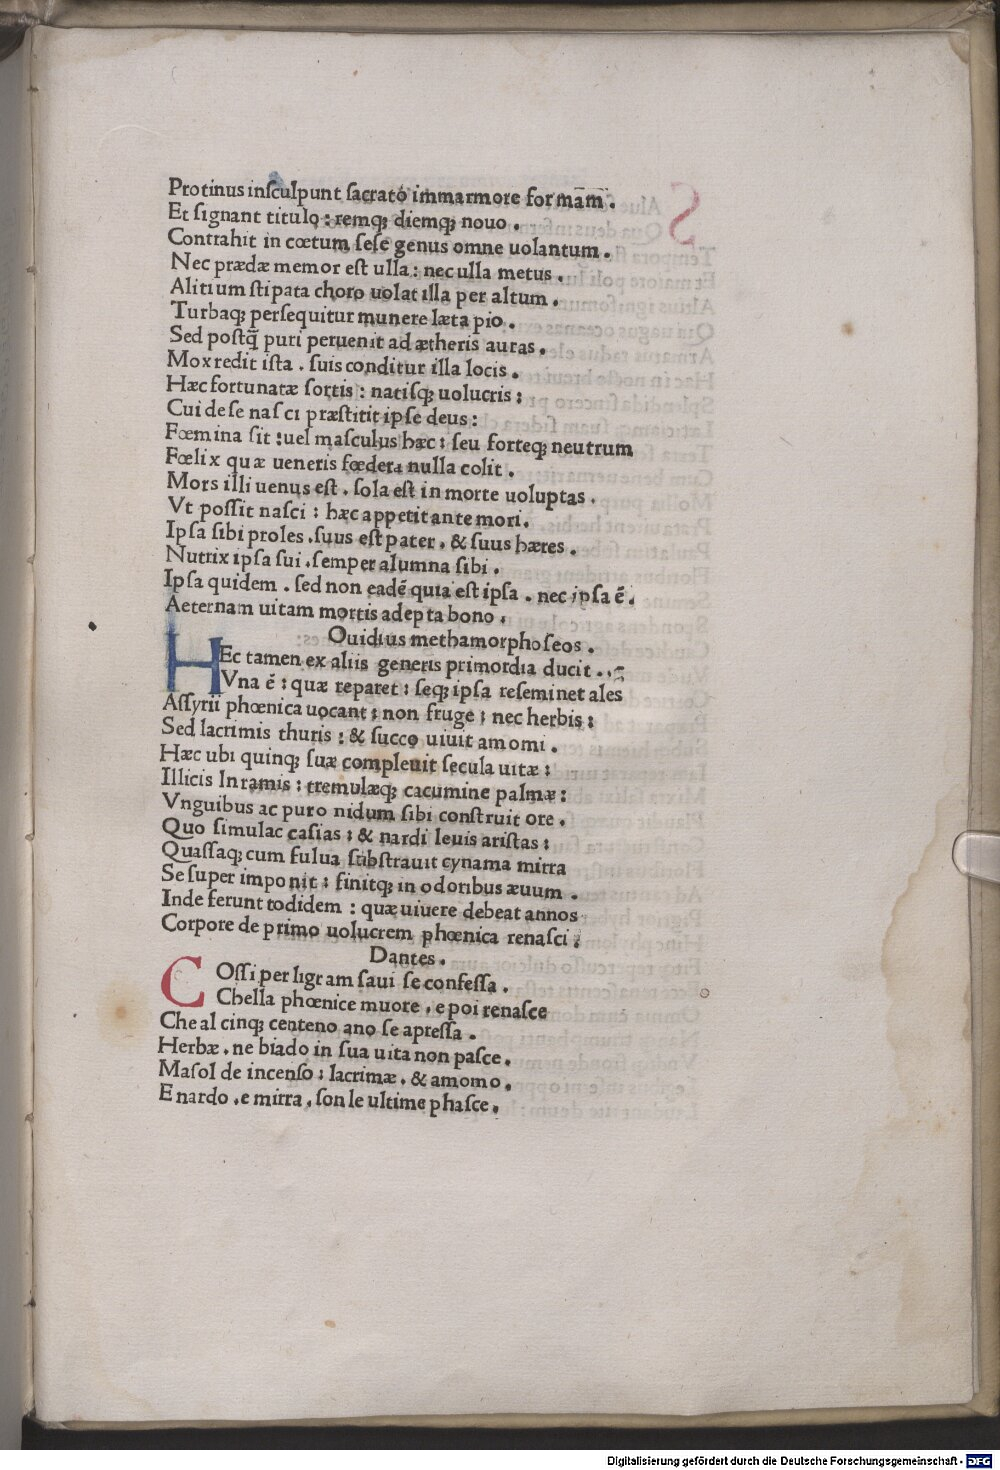 Protinus insculpunt sacrato immarmore for mam̄.
Et signant titulo : remq; diemq; nouo.
Contrahit in cœtum sese genus omne uolantum.
Nec prædæ memor est ulla : nec ulla metus.
Alitium stipata choro uolat illa per altum.
Turbaq; persequitur munere læta pio.
Sed postq̄ puri peruenit ad ætheris auras.
Mox redit ista . suis conditur illa locis.
Hæc fortunatæ sortis : natisq; uolucris :
Cui de se nasci præstitit ipse deus :
Fœmina sit : uel masculus hæc : seu forteq; neutrum
Fœlix quæ ueneris fœdera nulla colit.
Mors illi uenus est . sola est in morte uoluptas.
Vt possit nasci : hæc appetit ante mori.
Ipsa sibi proles . suus est pater . & suus hæres.
Nutrix ipsa sui . semper alumna sibi.
Ipsa quidem . sed non eadē quia est ipsa . nec ipsa ē.
Aeternam uitam mortis adepta bono.
Ouidius methamorphoseos.
HEc tamen ex aliis generis primordia ducit..
Vna ē : quæ reparet : seq; ipsa reseminet ales
Assyrii phœnica uocant : non fruge : nec herbis :
Sed lacrimis thuris : & succo uiuit amomi.
Hæc ubi quinq; suæ compleuit secula uitæ :
Illicis In ramis : tremulæq; cacumine palmæ :
Vnguibus ac puro nidum sibi construit ore.
Quo simulac casias : & nardi leuis aristas :
Quassaq; cum fulua substrauit cynama mirra
Se super imponit : finitq; in odoribus æuum.
Inde ferunt todidem : quæ uiuere debeat annos
Corpore de primo uolucrem phœnica renasci :
Dantes.
COssi per ligram saui se confessa.
Chella phœnice muore . e poi renasce
Che al cinq; centeno ano se apressa.
Herbæ . ne biado in sua uita non pasce.
Masol de incenso : lacrimæ . & amomo.
E nardo . e mirra . son le ultime phasce.
Digitalisierung gefördert durch die Deutsche Forschungsgemeinschaft - DFG